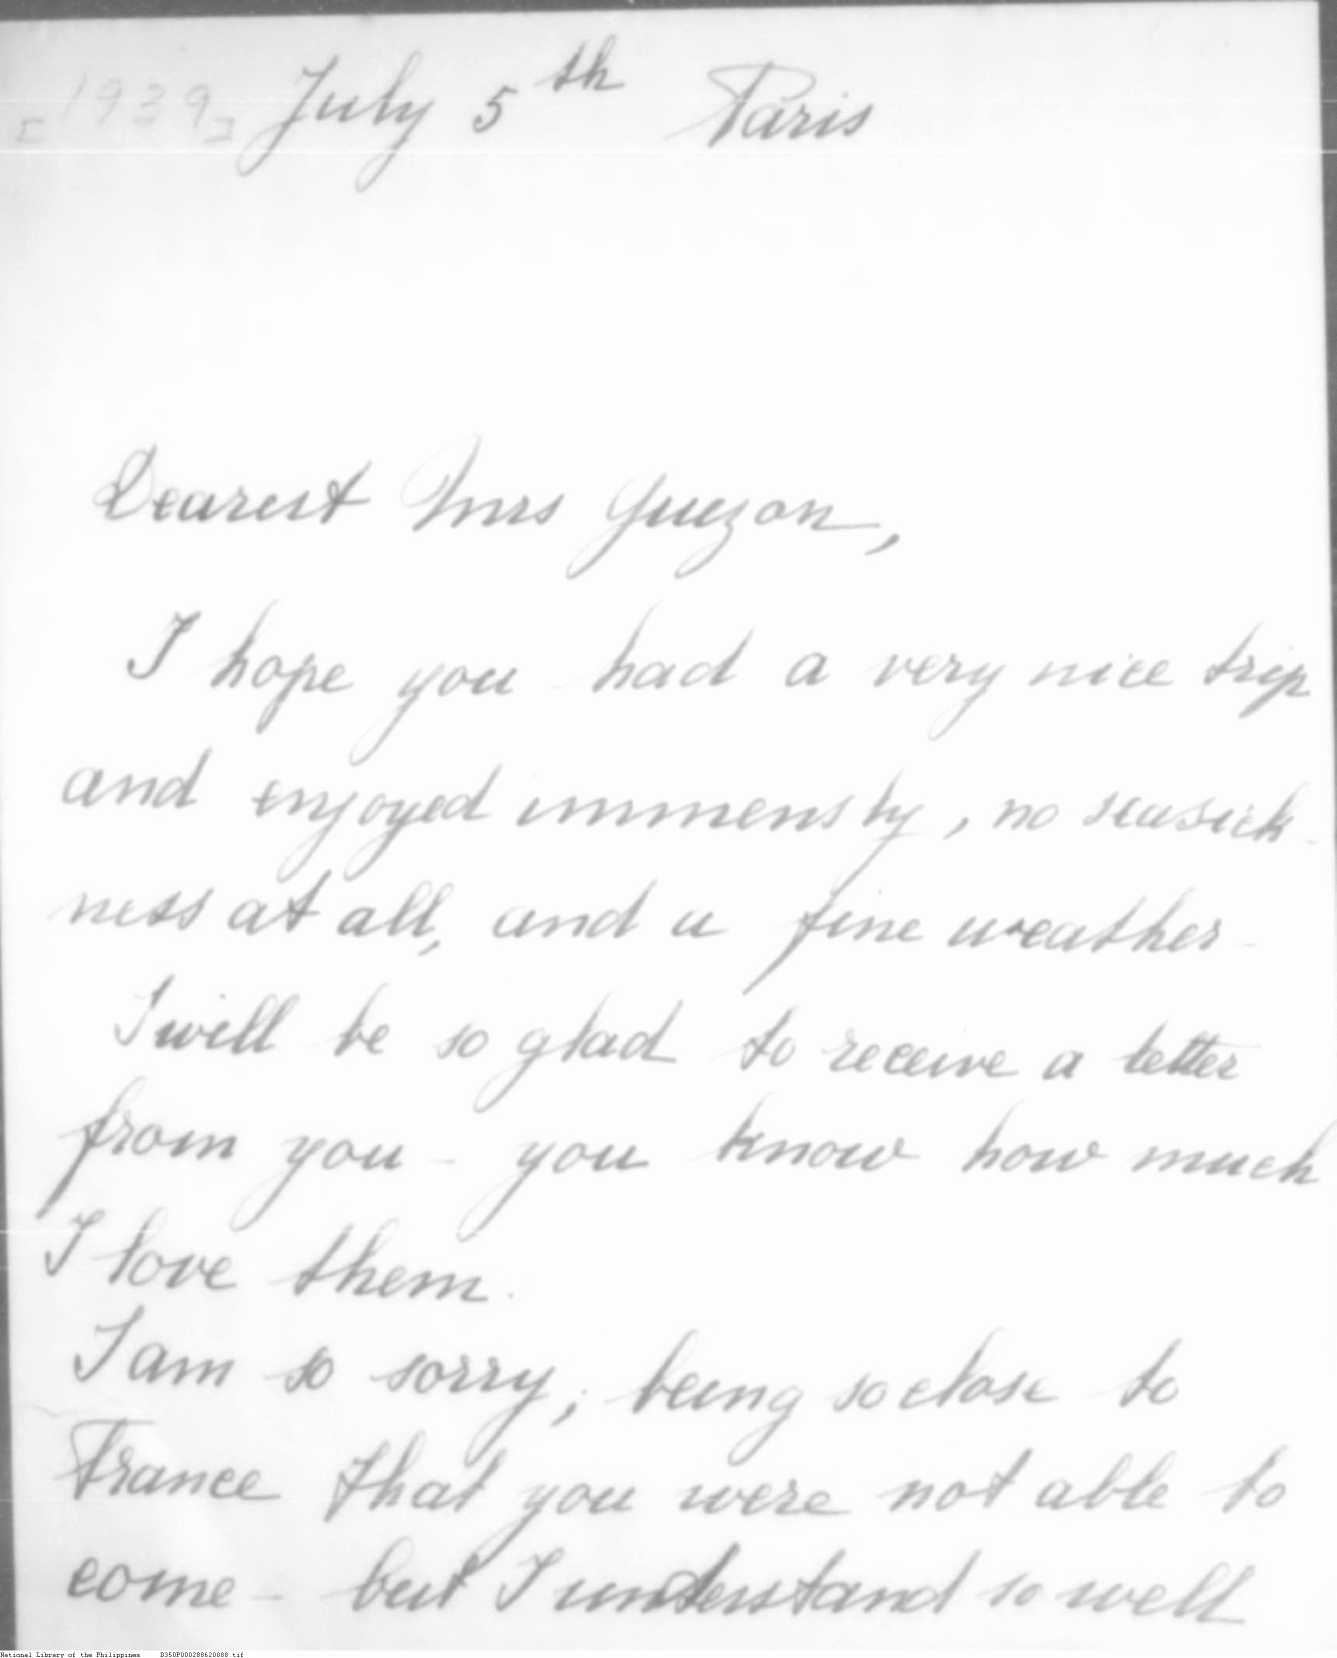 [1939] July 5th Paris
Dearest Mrs Quezon,
I hope you had a very nice trip
and enjoyed immensly, no seasick-
ness at all, and a fine weather -
I will be so glad to receive a letter
from you - you know how much
I love them.
I am so sorry, being so close to
France that you were not able to
come - but I understand so well
National Library of the Philippines B350P000288620088.tif